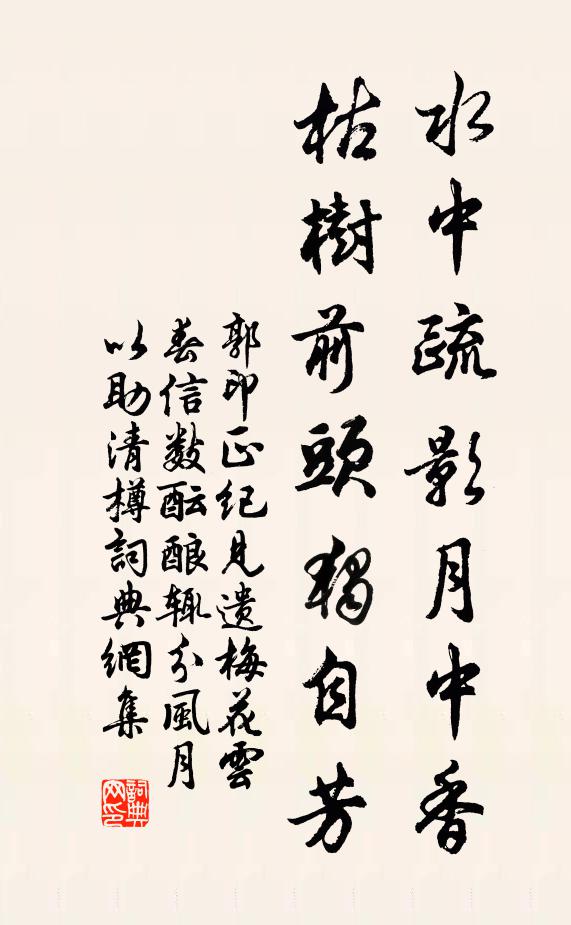 水中疏影月中香
枯樹前頭獨自芳
郭印正纪見遺梅花雲
春信数酝酿辄分風月
以助清樽詞典網集
詞典网印